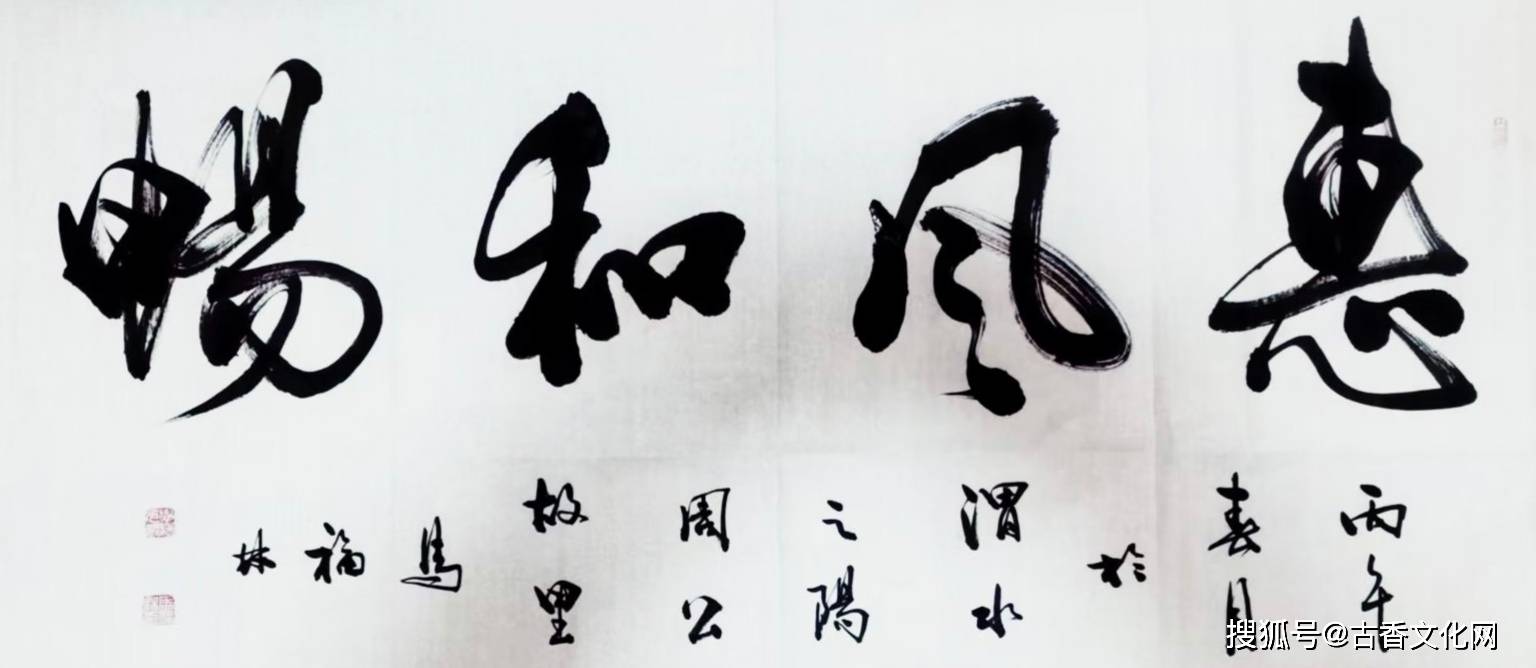 惠風和暢
丙午
春月
於
渭水
之陽
周公
故里
馬
福
林
搜狐号@古香文化网